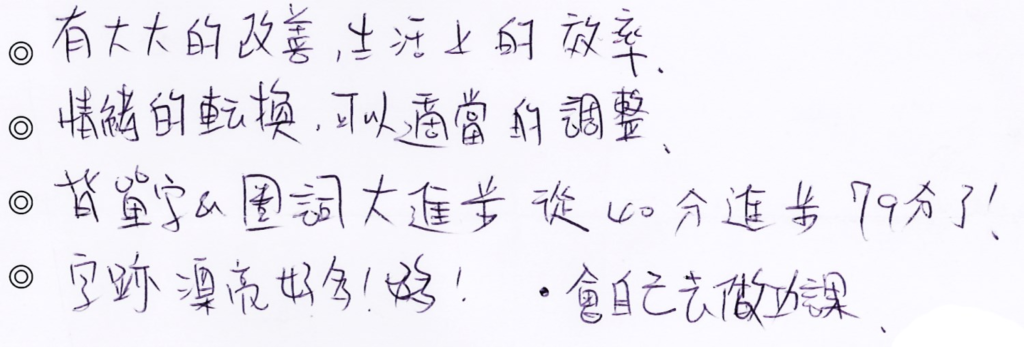 ◎ 有大大的改善,生活上的效率.
◎ 情緒的転換,可以適當的調整、
◎ 背單字&圈詞大進步 從40分進步79分了!
◎ 字跡漂亮好多!好多! ·會自己去做功課、